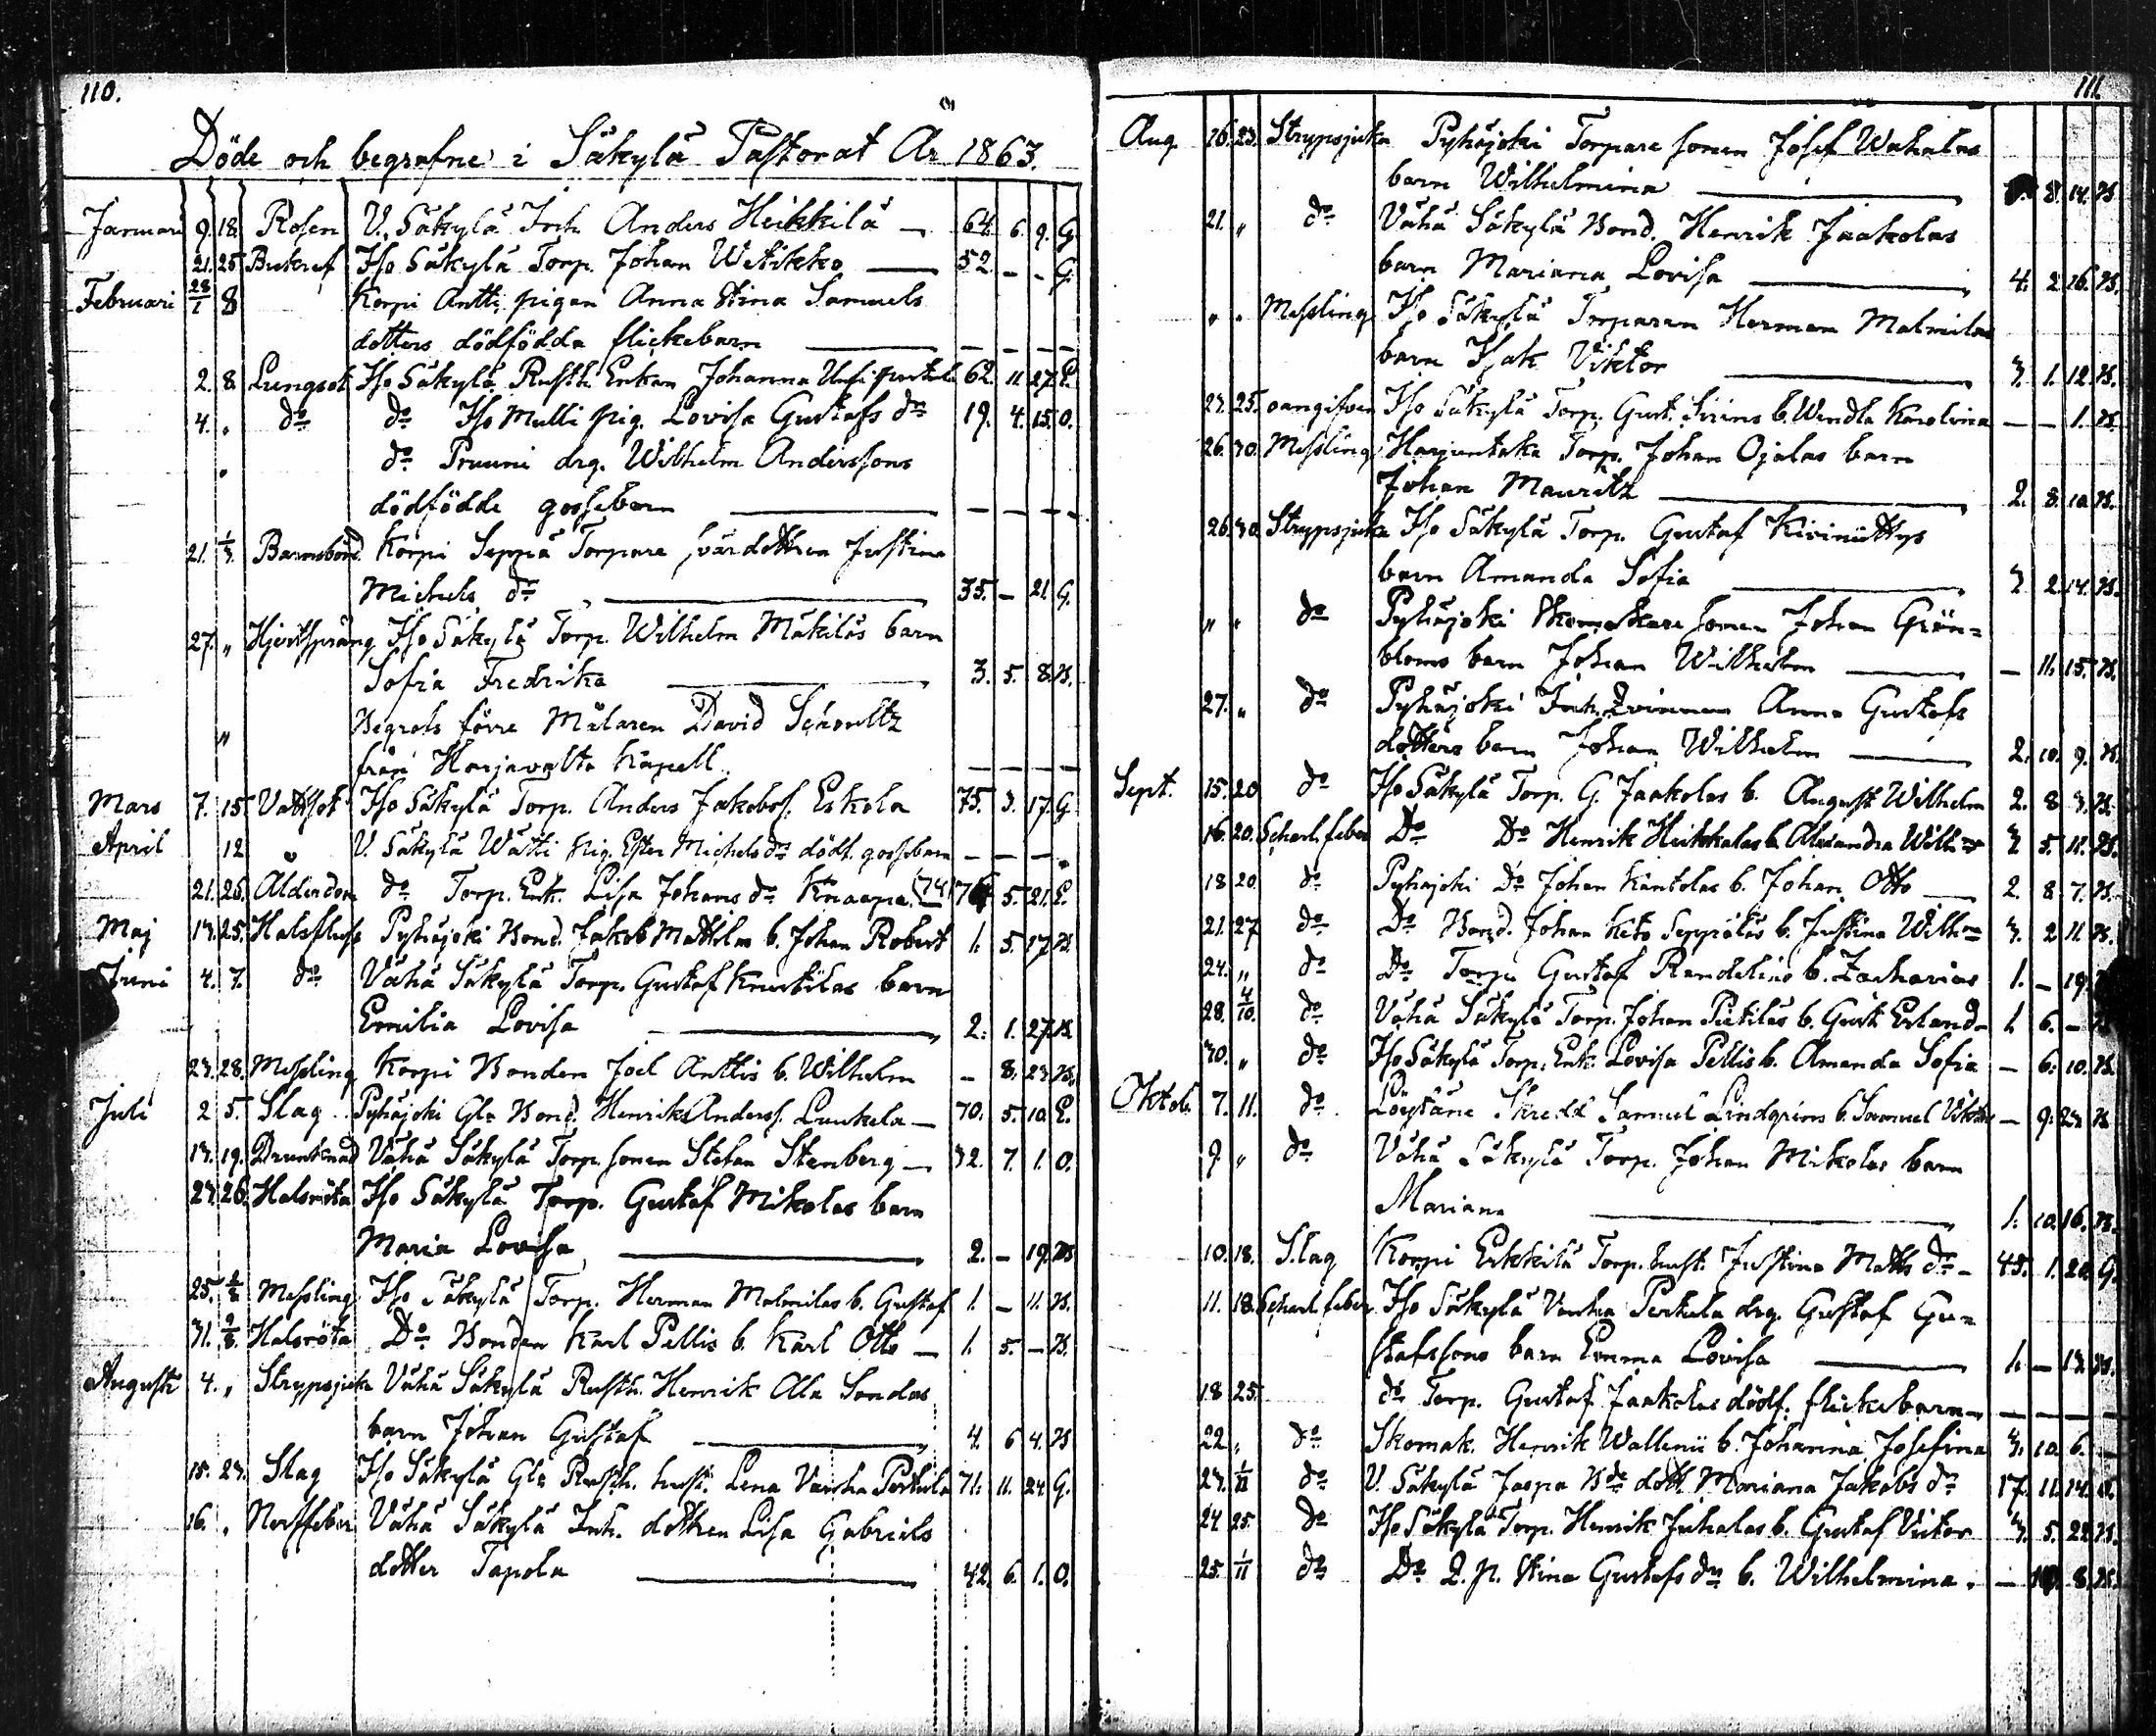 110.
Döde och begrafne i Säkylä Pastorat År 1863.
Januari 9. 18. Rosen V. Säkylä Inh. Anders Heikkilä — 64. 6. 9. G
21. 25 Bukref Iso Säkylä Torp. Johan Wetikko — 52. - - G.
Februari 28/1 8 Korpi Antti pigan Anna Stina Samuels
dotters dödfödda flickebarn — — — —
2. 8. Lungsot Iso Säkylä Rusth. Enkan Johanna 62. 11. 27. E.
4. " do do Iso Mulli pig. Lovisa Gustafs dr 19. 4. 15. O.
" do Pruuni drg. Wilhelm Anderssons
dödfödde gossebarn — — — —
21. 1/3. Barnsbörd Korpi Seppä Torpare svärdottren Justina
Michels dr — 35. - 21. G.
27. " Hjertsprång Iso Säkylä Torp. Wilhelm Mäkiläs barn
Sofia Fredrika — 3. 5. 8. B.
" Begrofs förre Målaren David Schoultz
från Harjavalta Kapell. — — — —
Mars 7. 15. Vattsot Iso Säkylä Torp. Anders Jakobss. Eskola 75. 3. 17. G
April 12 " V. Säkylä Wätti Pig. Ester Michels dr dödf. gossebarn — — — —
21. 26. Ålderdom do Torp. Enk. Lisa Johans dr Knaapa (74) 76 5. 21. E.
Maj 13. 25. Halsfluss Pyhäjoki Bond. Jakob Mattilas b. Johan Robert 1. 5. 17 B.
Juni 4. 7. do Vähä Säkylä Torp. Gustaf Knuutilas barn
Emilia Lovisa — 2. 1. 27. B.
23. 28. Messling Korpi Bonden Joel Anttis b. Wilhelm - 8. 23. B.
Juli 2 5. Slag Pyhäjoki Gle Bond. Henrik Anderss. Luukela — 70. 5. 10. E.
13. 19. Drunknad Vähä Säkylä Torp. sonen Stefan Stenberg — 32. 7. 1. O.
23. 26. Halsröta Iso Säkylä Torp. Gustaf Mikolas barn
Maria Lovisa — 2. - 19. B
25. 2/8 Messling Iso Säkylä Torp. Herman Malmilas b. Gustaf 1. - 11. B.
31. 9/8. Halsröta Do Bonden Karl Pellis b. Karl Otto — 1. 5. - B.
Augusti 4. " Strypsjuka Vähä Säkylä Rusth. Henrik Ala Sondas
barn Johan Gustaf — 4. 6 4. B
15. 23. Slag Iso Säkylä Gle Rusth. hust. Lena Vanha Perhula 71. 11. 24. G.
16. " Nerffeber Vähä Säkylä Inh. dottren Lisa Gabriels
dotter Tapola — 42. 6. 1. O.
111.
Aug. 16. 23. Strypsjuka Pyhäjoki Torpare sonen Josef Wahalas
barn Wilhelmina — 8. 14. B
21. " do Vähä Säkylä Bond. Henrik Jaakolas
barn Mariana Lovisa — 4. 2 16. B.
" " Messling Iso Säkylä Torparen Herman Malmilas
barn Isak Viktor — 3. 1. 12. B.
23. 25. oangifven Iso Säkylä Torp. Gust. Siréns b. Wendla Karolina — — 1. B.
26. 30. Messling Harjuntaka Torp. Johan Ojalas barn
Johan Mauritz — 2. 8. 10. B.
26. 30. Strypsjuka Iso Säkylä Torp. Gustaf Kiviniittys
barn Amanda Sofia — 3 2. 14. B.
" " do Pyhäjoki Skomakare sonen Johan Grön=
bloms barn Johan Wilhelm — - 11. 15. B.
27. " do Pyhäjoki Inh. Qvinnan Anna Gustafs
dotters barn Johan Wilhelm — 2. 10. 9. B.
Sept. 15. 20 do Iso Säkylä Torp. G. Jaakolas b. August Wilhelm 2. 8 3. B.
16. 20. Scharl. feber Do Do Henrik Heikkolas b. Alexandra Wilh:a 3. 5. 11. B.
18 20. do Pyhäjoki Do Johan Kantolas b. Johan Otto — 2. 8 7. B.
21. 27 do Do Bond. Johan Keto Seppäläs b. Justina Wilh:a 3. 2 11. B.
24. " do Do Torp. Gustaf Randelins b. Zacharias 1. - 19.
28. 4/10. do Vähä Säkylä Torp. Johan Pietiläs b. Gust. Erland — 1. 6. -
30. " do Iso Säkylä Torp. Enk. Lovisa Pellis b. Amanda Sofia - 6. 10. B.
Oktob. 7. 11. do Löytäne Skredd Samuel Lindgrens b. Samuel Viktor - 9. 23 B
9 " do Vähä Säkylä Torp. Johan Mikolas barn
Mariana — 1. 10. 16. B.
10. 18. Slag Korpi Erkkilä Torp. hust. Justina Matts dr - 45. 1. 20. G.
11. 18. Scharl. feber Iso Säkylä Vanha Perhula drg. Gustaf Gu=
stafssons barn Emma Lovisa — 1. - 13. B.
18 25. do Torp. Gustaf Jaakolas dödf. flickebarn — — — —
22 " do Skomak. Henrik Wallenii b. Johanna Josefina 3. 10 6. -
23. 1/11 do V. Säkylä Jaspa Bde dott. Mariana Jakobs dr 17. 11. 14. O.
24 25. do Iso Säkylä Torp. Henrik Juhalas b. Gustaf Victor 3. 5. 22. B.
25. 1/11 do Do Q. P. Stina Gustafs dr b. Wilhelmina. - 10. 8. B.